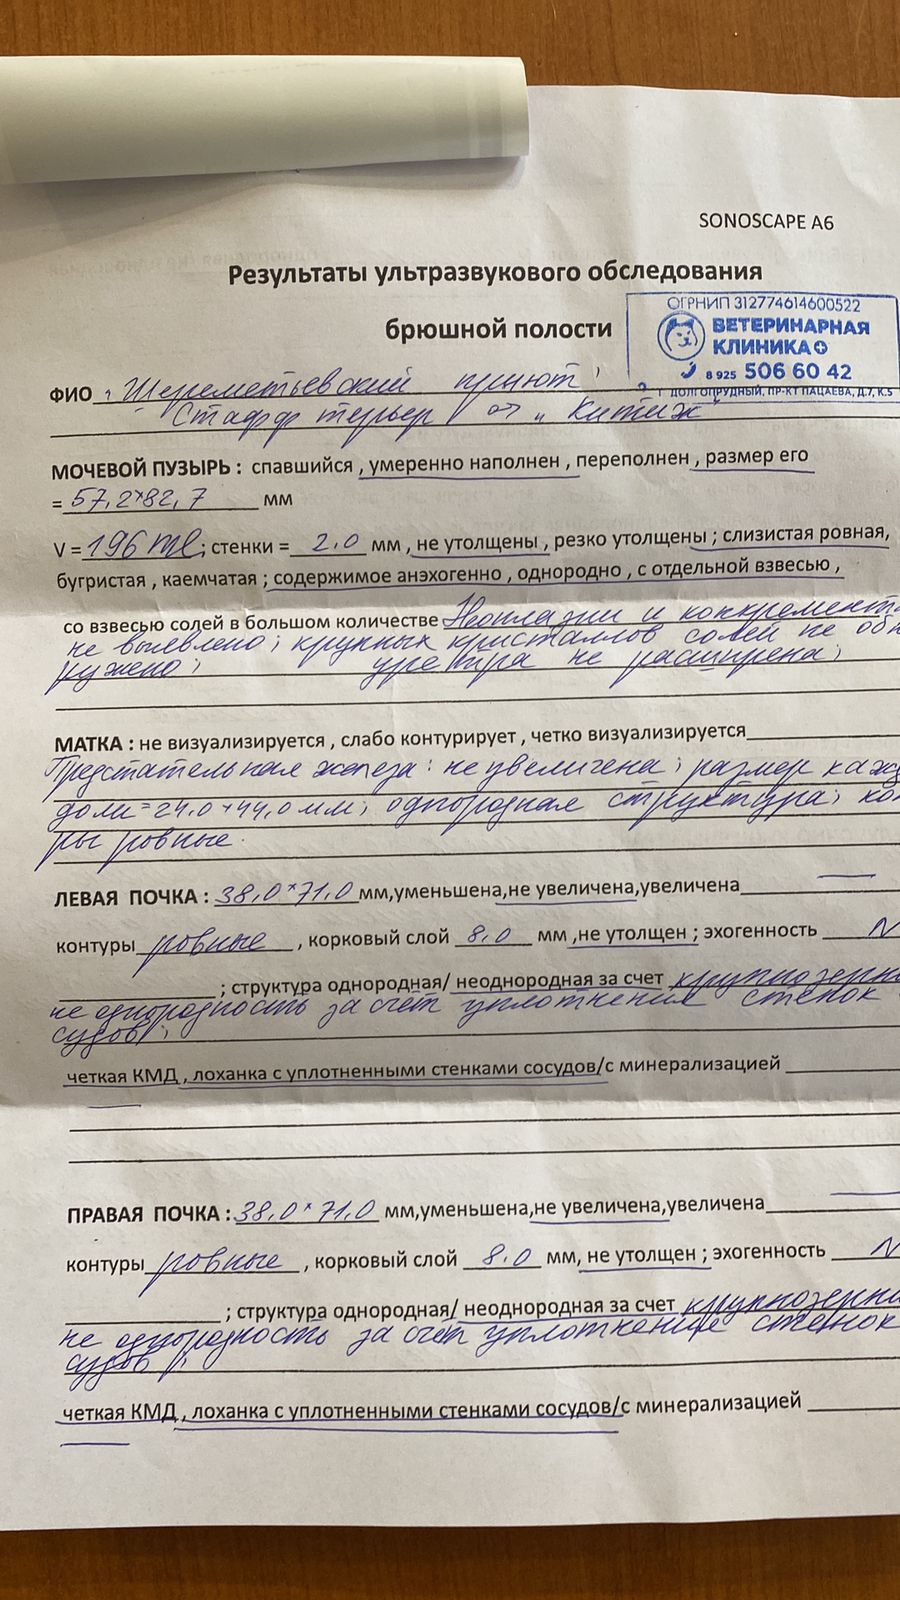 SONOSCAPE A6
Результаты ультразвукового обследования
брюшной полости
ОГРНИП 312774614600522
ВЕТЕРИНАРНАЯ
КЛИНИКА
8 925 506 60 42
Г. ДОЛГОПРУДНЫЙ, ПР-КТ ПАЦАЕВА, Д.7, К.5
ФИО "Шереметьевский приют"
Стафф терьер "Китиж"
МОЧЕВОЙ ПУЗЫРЬ : спавшийся , умеренно наполнен , переполнен , размер его
= 57,2*82,7 мм
V = 196 ml ; стенки = 2.0 мм , не утолщены , резко утолщены ; слизистая ровная,
бугристая , каемчатая ; содержимое анэхогенно , однородно , с отдельной взвесью ,
со взвесью солей в большом количестве Неоплазии и конкремент
не выевлено; крупных кристаллов солей не обн
ружено; уретра не расширена;
МАТКА : не визуализируется , слабо контурирует , четко визуализируется
Предстательная железа: не увеличена; размер каж
доли = 24.0*44,0 мм; однородная структура; кон
ры ровные.
ЛЕВАЯ ПОЧКА : 38,0*71.0 мм,уменьшена,не увеличена,увеличена
контуры ровные , корковый слой 8.0 мм ,не утолщен ; эхогенность N
; структура однородная/ неоднородная за счет крупнозерни
не однородность за счёт уплотнения стенок
судов;
четкая КМД , лоханка с уплотненными стенками сосудов/с минерализацией
ПРАВАЯ ПОЧКА : 38.0*71.0 мм,уменьшена,не увеличена,увеличена
контуры ровные , корковый слой 8.0 мм, не утолщен ; эхогенность N
; структура однородная/ неоднородная за счет крупнозерни
не однородность за счёт уплотнение стенок
судов;
четкая КМД , лоханка с уплотненными стенками сосудов/с минерализацией